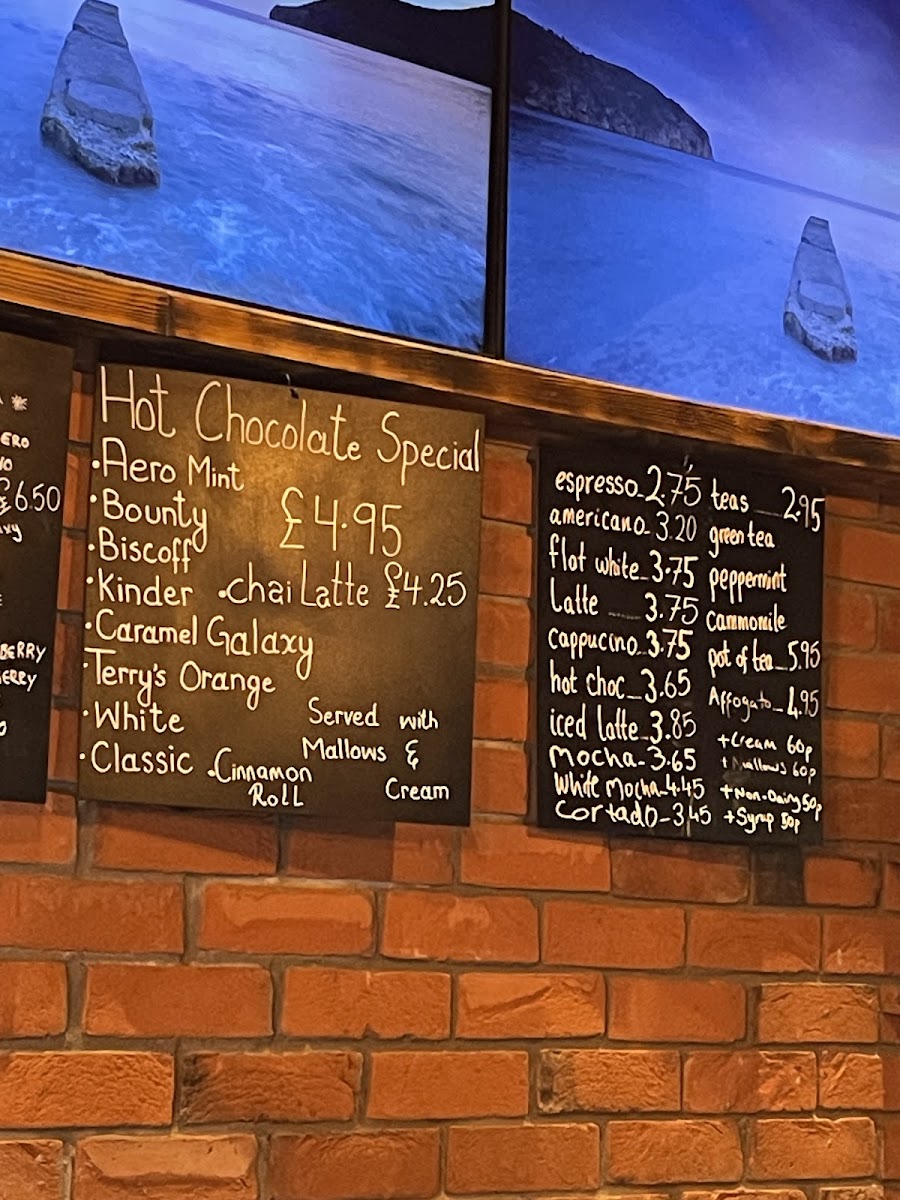 ERO
£6.50
BERRY
Hot Chocolate Special
•Aero Mint
•Bounty
£4.95
•Biscoff
•Kinder
•chai Latte £4.25
•Caramel Galaxy
•Terry's Orange
•White
•Classic
•Cinnamon
Roll
Served with
Mallows &
Cream
espresso 2.75
americano 3.20
flat white 3.75
Latte 3.75
cappucino 3.75
hot choc 3.65
iced latte 3.85
Mocha 3.65
White Mocha 4.45
Cortado 3.45
teas 2.95
green tea
peppermint
cammomile
pot of tea 5.95
Affogato 4.95
+Cream 60p
+Mallows 60p
+Non-Dairy 50p
+Syrup 50p